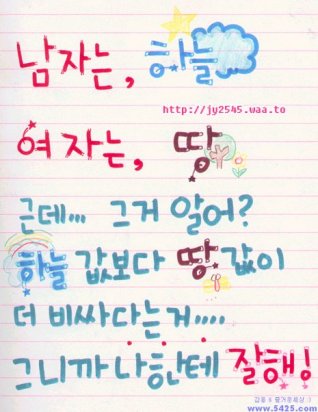 남자는, 하늘
http://jy2545.waa.to
여자는, 땅
근데... 그거 알어?
하늘 값보다 땅 값이
더 비싸다는거.....
그니까 나한테 잘해!
www.5425.com